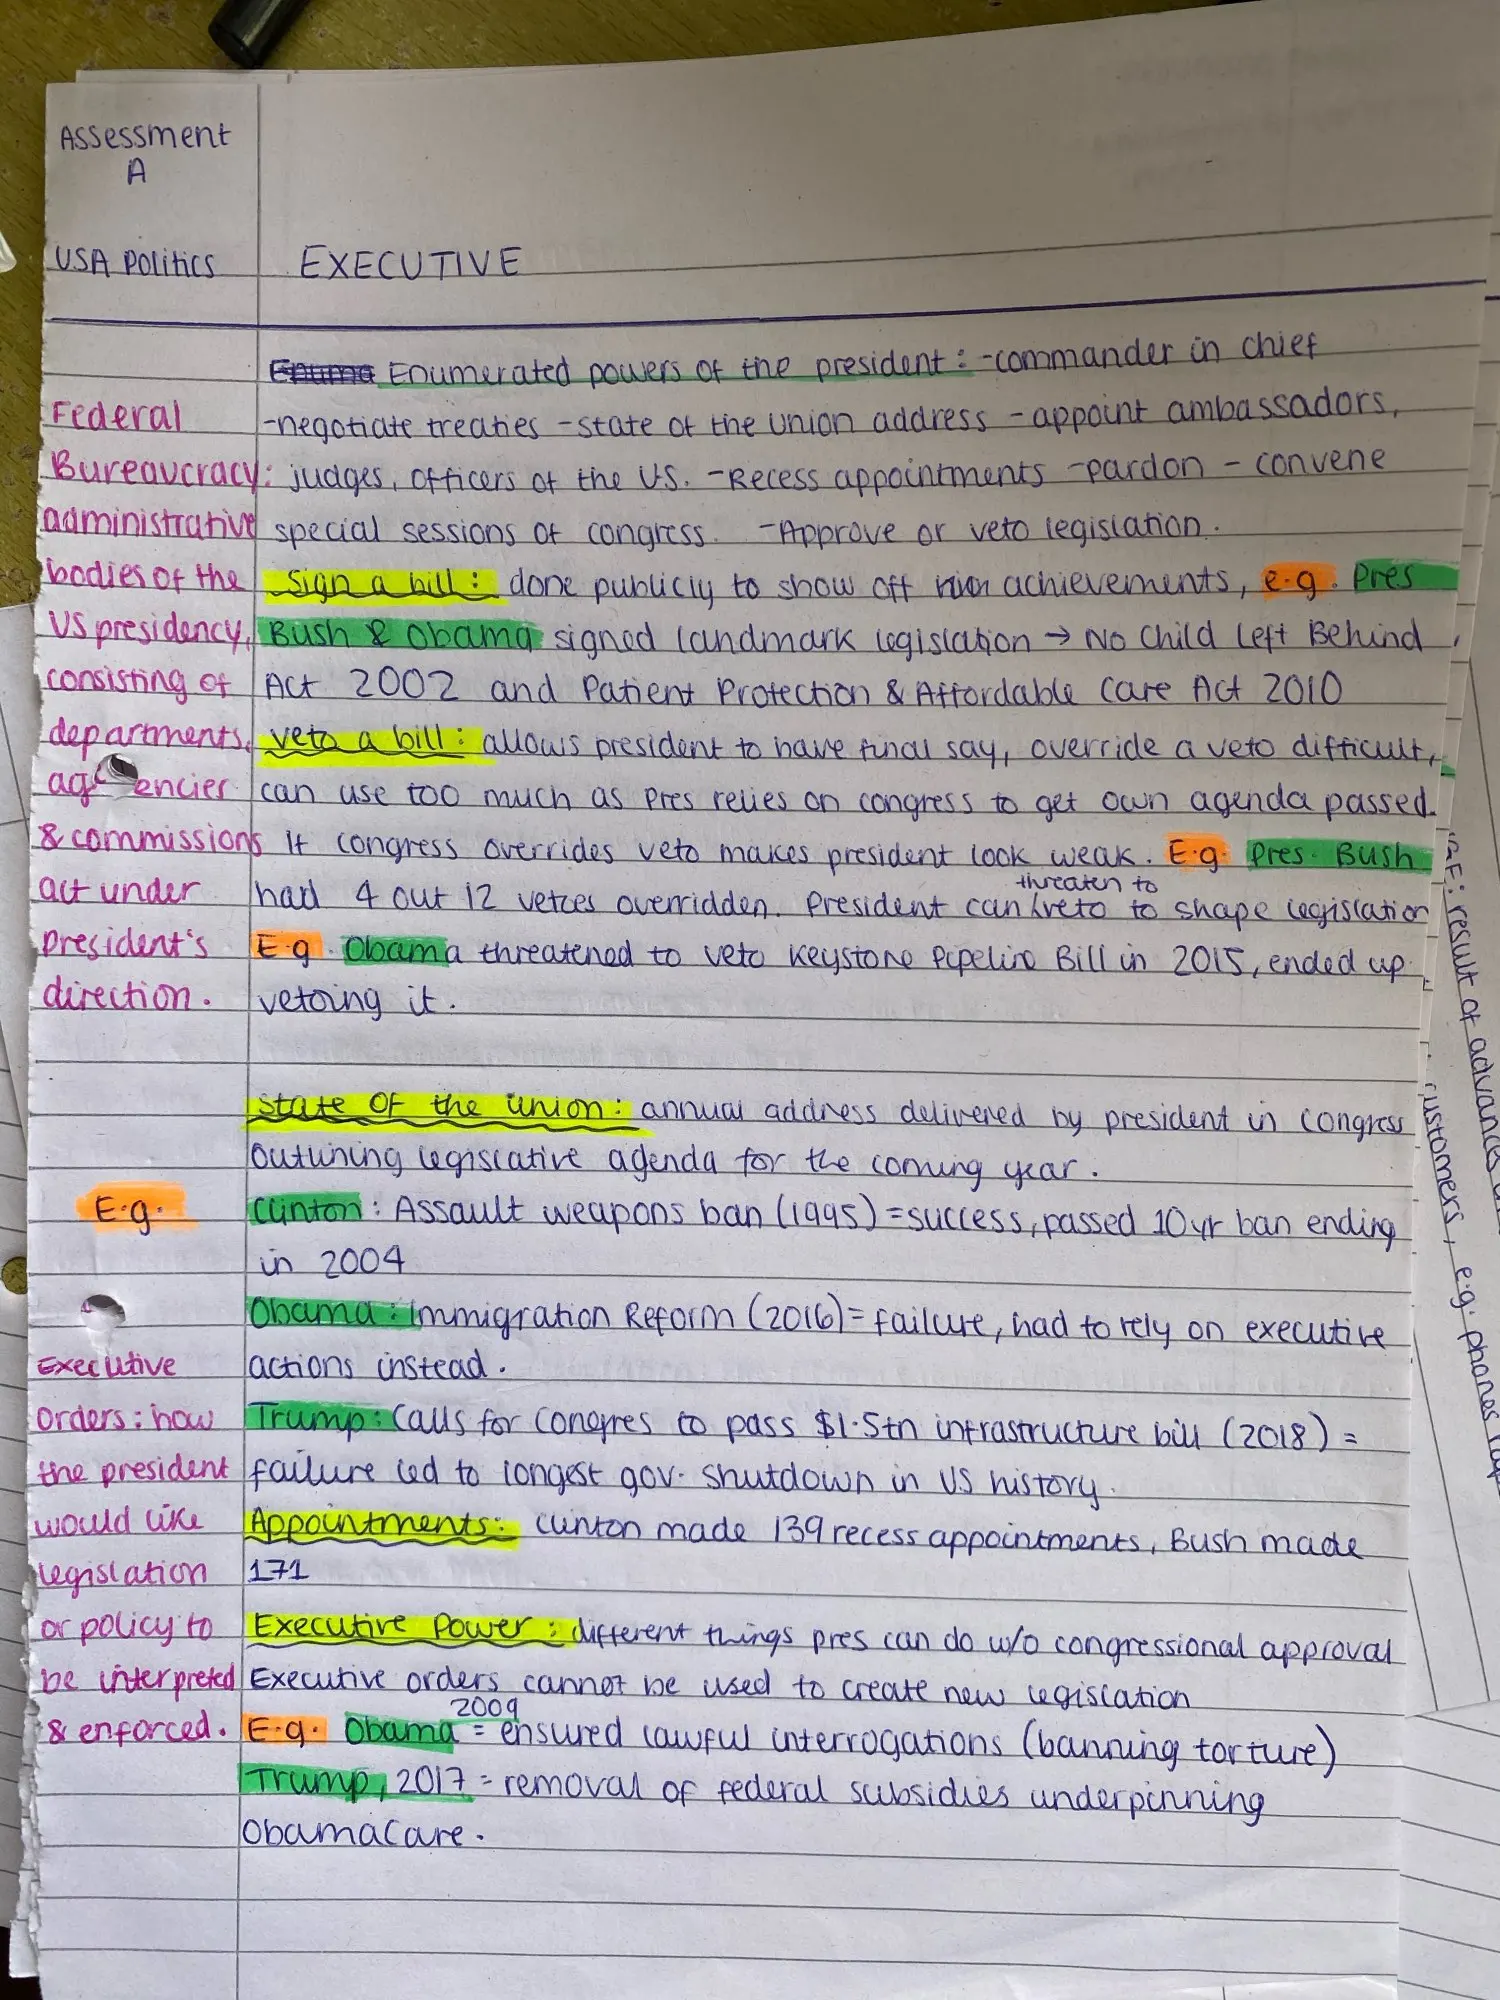 Assessment
A
USA Politics
EXECUTIVE
Enumerated powers of the president: -commander in chief
-negotiate treaties -state of the union address -appoint ambassadors,
judges, officers of the US. -Recess appointments -pardon - convene
special sessions of congress. -Approve or veto legislation.
Sign a bill: done publicly to show off achievements, e.g. Pres
Bush & Obama signed landmark legislation → No Child Left Behind
Act 2002 and Patient Protection & Affordable Care Act 2010
veto a bill: allows president to have final say, override a veto difficult,
can use too much as pres relies on congress to get own agenda passed.
If congress overrides veto makes president look weak. E.g. Pres. Bush
had 4 out 12 vetoes overridden. President can threaten to veto to shape legislation
E.g. Obama threatened to veto Keystone Pipeline Bill in 2015, ended up
vetoing it.
State of the union: annual address delivered by president in congress
outlining legislative agenda for the coming year.
E.g.
Clinton: Assault weapons ban (1995) = success, passed 10yr ban ending
in 2004
Obama: Immigration Reform (2016) = failure, had to rely on executive
actions instead.
Trump: Calls for Congres to pass $1.5tn infrastructure bill (2018) =
failure led to longest gov. shutdown in US history.
Appointments: Clinton made 139 recess appointments, Bush made
171
Executive Power: different things pres can do w/o congressional approval
Executive orders cannot be used to create new legislation
E.g. Obama 2009 = ensured lawful interrogations (banning torture)
Trump, 2017 = removal of federal subsidies underpinning
Obamacare.
Federal
Bureaucracy:
administrative
bodies of the
US presidency,
consisting of
departments,
agencies
& commissions
act under
president's
direction.
Executive
orders: how
the president
would like
legislation
or policy to
be interpreted
& enforced.
: result of advances
customers, e.g. phones